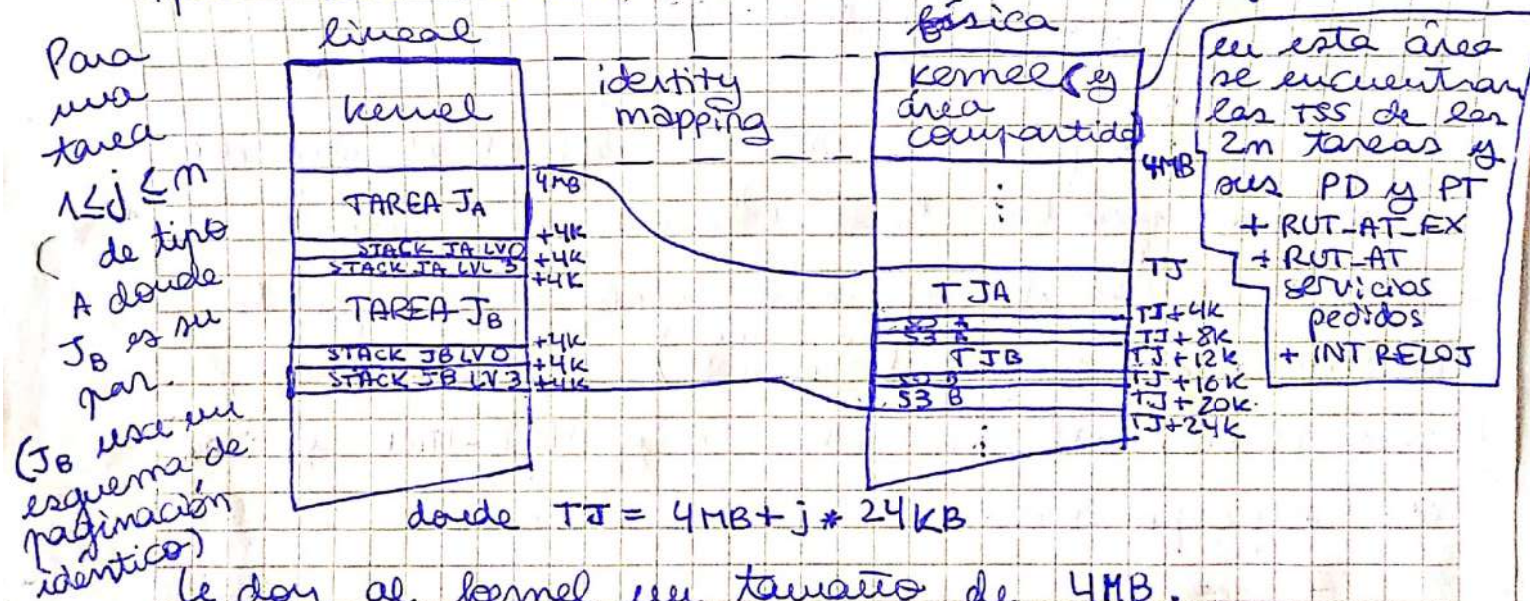 lineal
física
Para
una
tarea
1≤j≤n
( de tipo
A donde
J_B es su
par.
(J_B usa un
esquema de
paginación
idéntico)
kernel
4MB
TAREA J_A
+4K
STACK JA LV0
+4K
STACK JA LVL 3
+4K
TAREA J_B
+4K
STACK JB LV0
+4K
STACK JB LV3
+4K
identity
mapping
kernel y
área
compartida
4MB
TJ
TJA
TJ+4K
S0 A
TJ+8K
TJ+12K
TJB
TJ+16K
S0 B
TJ+20K
S3 B
TJ+24K
en esta área
se encuentran
las TSS de las
2n tareas y
sus PD y PT
+ RUT_AT_EX
+ RUT_AT
servicios
pedidos
+ INT RELOJ
donde TJ = 4MB + j * 24KB
le doy al kernel un tamaño de 4MB.